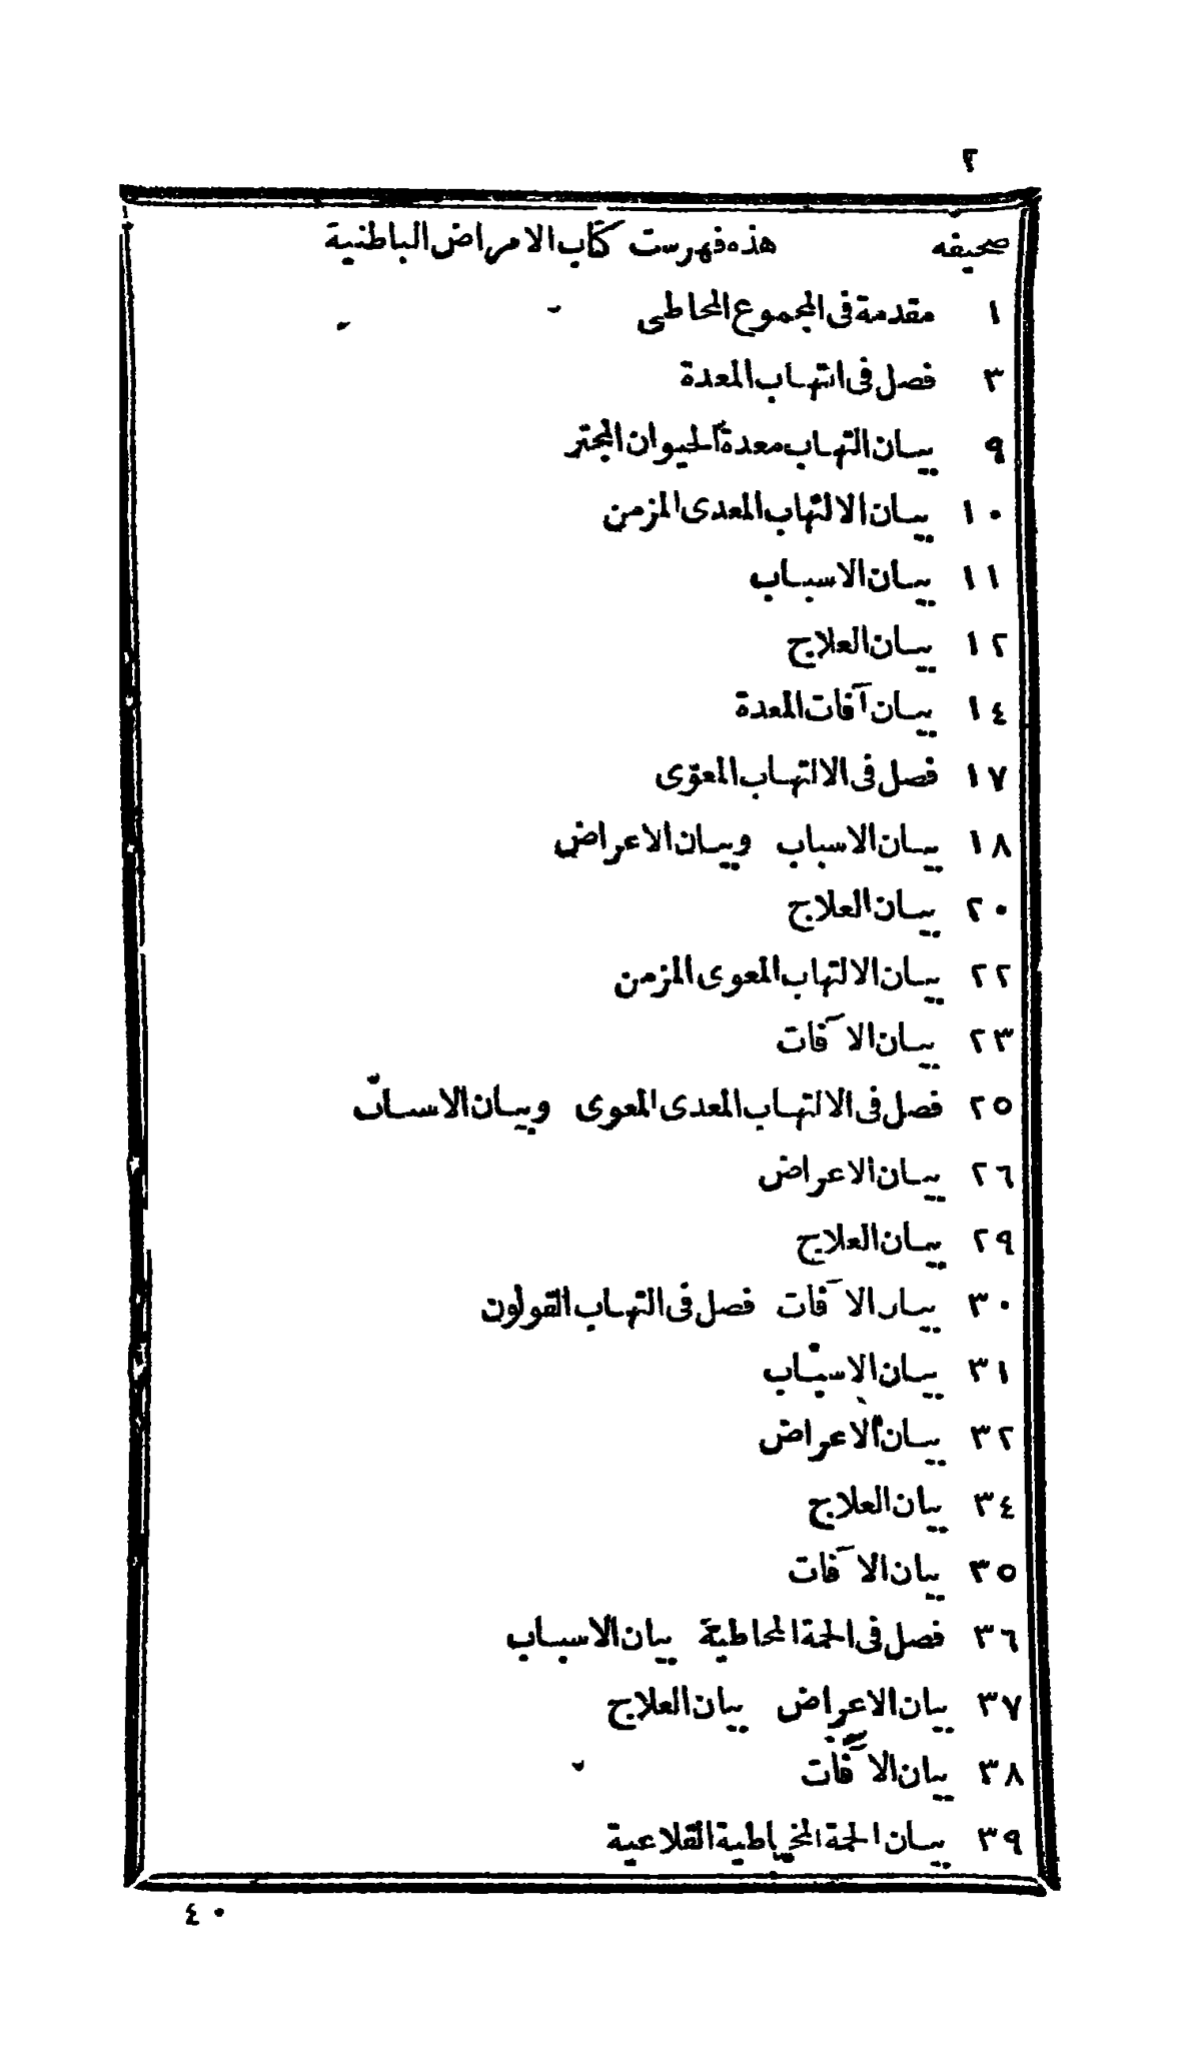 ٢
صحيفه هذه فهرست كتاب الامراض الباطنية
١ مقدمة فى المجموع المخاطى
٣ فصل فى التهاب المعدة
٩ بيان التهاب معدة الحيوان المجتر
١٠ بيان الالتهاب المعدى المزمن
١١ بيان الاسباب
١٢ بيان العلاج
١٤ بيان آفات المعدة
١٧ فصل فى الالتهاب المعوّى
١٨ بيان الاسباب وبيان الاعراض
٢٠ بيان العلاج
٢٢ بيان الالتهاب المعوى المزمن
٢٣ بيان الآفات
٢٥ فصل فى الالتهاب المعدى المعوى وبيان الاسباب
٢٦ بيان الاعراض
٢٩ بيان العلاج
٣٠ بيان الآفات فصل فى التهاب القولون
٣١ بيان الاسباب
٣٢ بيان الاعراض
٣٤ بيان العلاج
٣٥ بيان الآفات
٣٦ فصل فى الحمة المخاطية بيان الاسباب
٣٧ بيان الاعراض بيان العلاج
٣٨ بيان الآفات
٣٩ بيان الحمة المخاطية القلاعية
٤٠